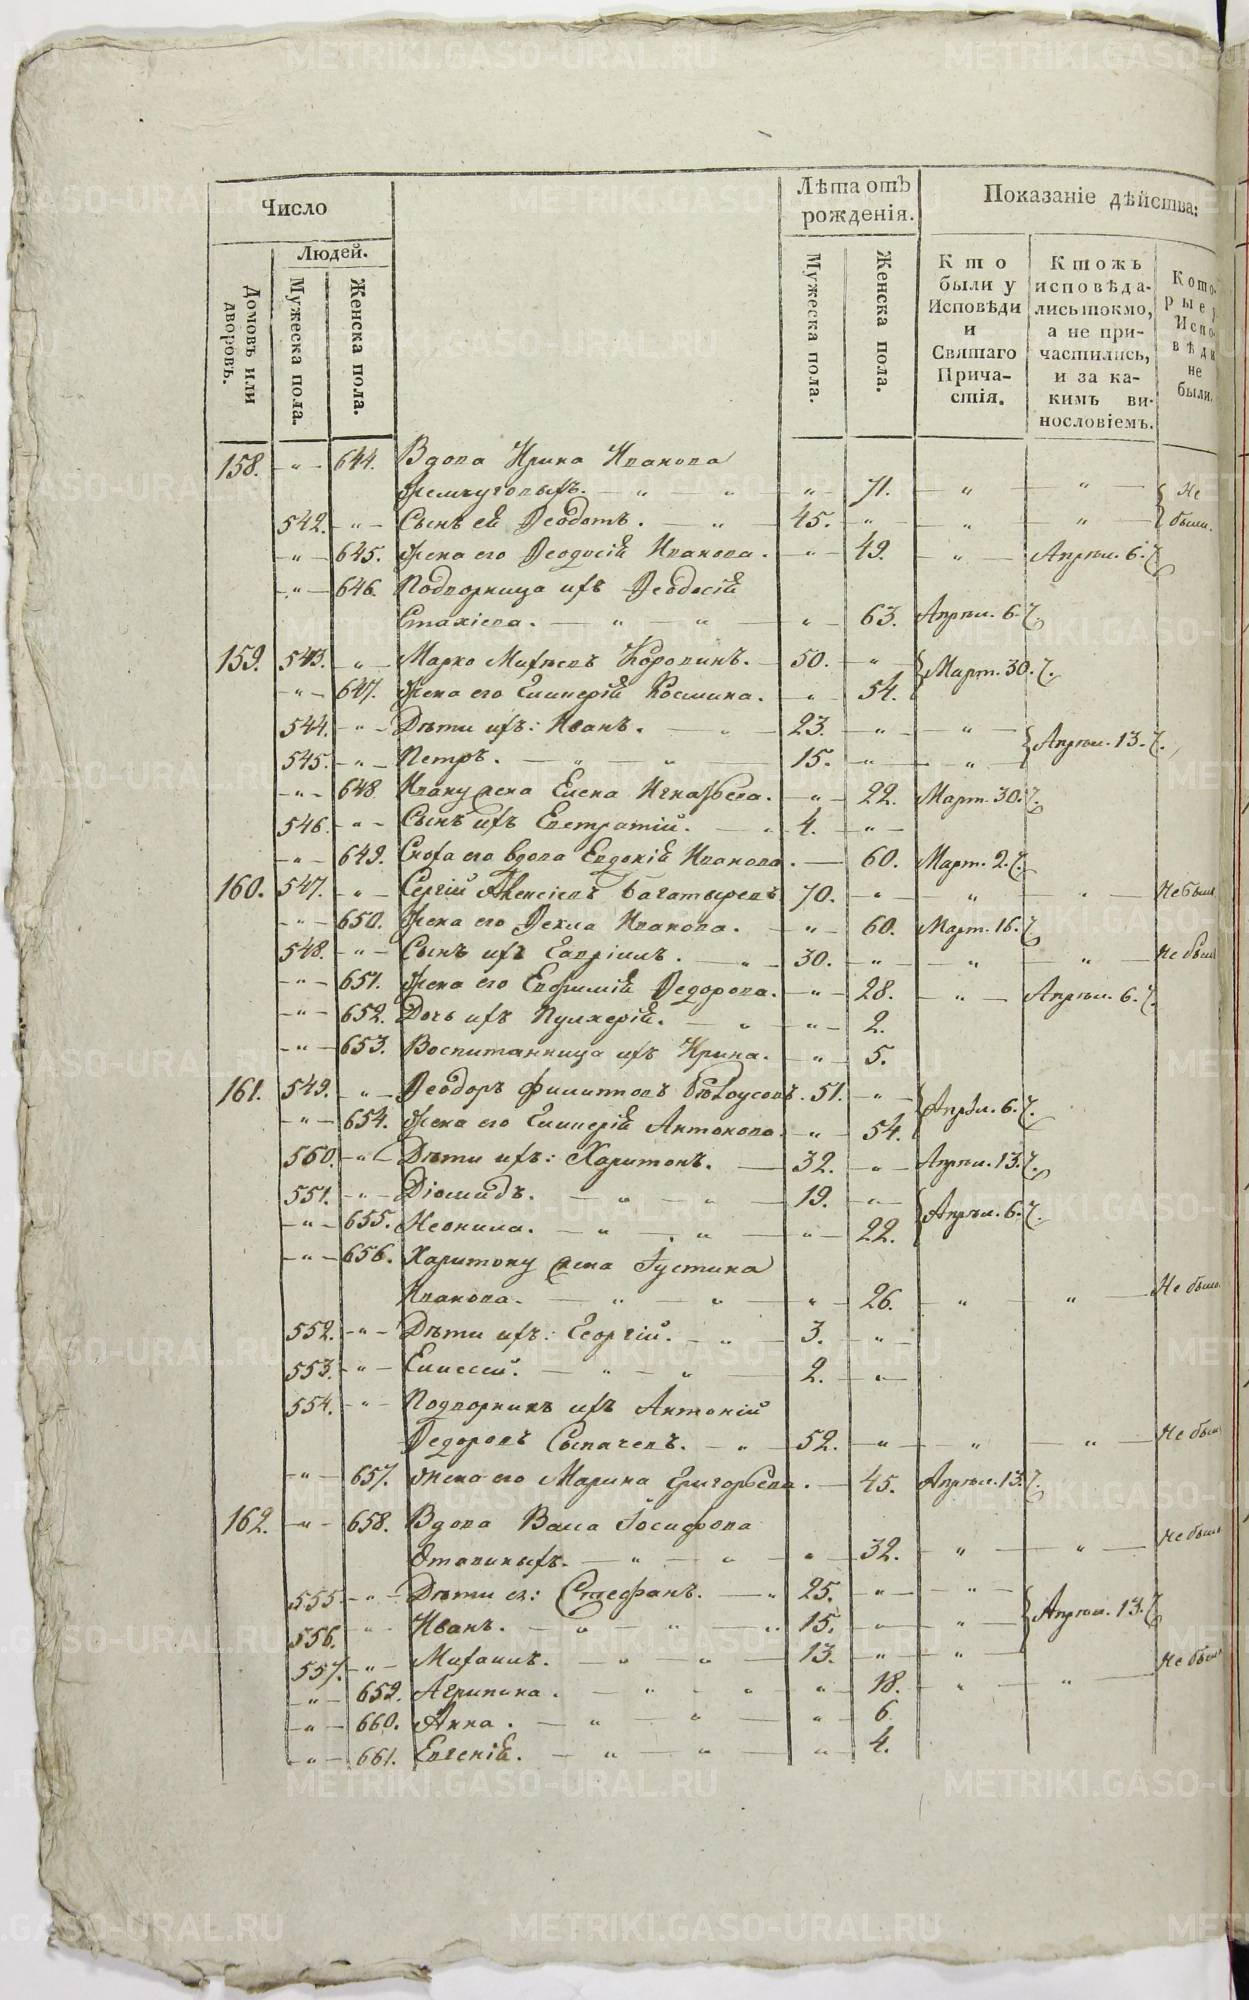 Число
Лѣта отъ рожденія.
Показаніе дѣйства:
Людей.
Домовъ или дворовъ.
Мужеска пола.
Женска пола.
Мужеска пола.
Женска пола.
Кто были у Исповѣди и Святаго Причастія.
Ктожъ исповѣдались токмо, а не причастились, и за какимъ винословіемъ.
Которые у Исповѣди не были.
158. -„- 644. Вдова Ирина Иванова
Жемчуговыхъ. — „ — „ — „ — 71. — „ — „ — Не
542. -„- Сынъ ей Ѳеодотъ. — „ 45. -„- „ — „ — были.
-„- 645. Жена его Ѳеодосія Иванова. -„- 49. — „ — Апрѣл. 6. 7.
-„- 646. Подворница ихъ Ѳеодосія
Естахіева. — „ — „ — „ — 63. Апрѣл. 6. 7.
159. 543. -„- Марко Михѣевъ Коровинъ. — 50. -„- Март. 30. 7.
-„- 647. Жена его Гликерія Космина. -„- 54.
544. -„- Дѣти ихъ: Иванъ. — „ — 23. -„- „ — Апрѣл. 13. 7.
545. -„- Петръ. — „ „ — 15. -„- „
-„- 648. Ивану жена Елена Игнатьева. -„- 22. Март. 30. 7.
546. -„- Сынъ ихъ Евстратій. — „ 4. -„-
-„- 649. Сноха его вдова Евдокія Иванова. — 60. Март. 2. 7.
160. 547. -„- Сергій Алексіевъ Багатыревъ 70. -„- „ — „ — Не былъ
-„- 650. Жена его Ѳекла Иванова. -„- 60. Март. 16. 7.
548. -„- Сынъ ихъ Гавріилъ. — „ — 30. -„- „ — „ — Не былъ
-„- 651. Жена его Евфимія Ѳедорова. -„- 28. — „ — Апрѣл. 6. 7.
-„- 652. Дочь ихъ Пулхерія. — „ -„- 2.
-„- 653. Воспитанница ихъ Ирина. -„- 5.
161. 549. -„- Ѳеодоръ Филиповъ Бѣлоусовъ. 51. -„- Апрѣл. 6. 7.
-„- 654. Жена его Гликерія Антонова. -„- 54.
560. -„- Дѣти ихъ: Харитонъ. — 32. -„- Апрѣл. 13. 7.
551. -„- Діомидъ. — „ — „ — 19. -„- Апрѣл. 6. 7.
-„- 655. Неонила. — „ — „ -„- 22.
-„- 656. Харитону жена Іустина
Иванова. — „ — „ -„- 26. — „ — „ — Не была
552. -„- Дѣти ихъ: Георгій. — „ — 3. -„-
553. -„- Елисей. — „ — „ — 2. -„-
554. -„- Подворникъ ихъ Антоній
Ѳедоровъ Сыпачевъ. — „ — 52. -„- „ — „ — Не былъ
-„- 657. Жена его Марина Григорьева. — 45. Апрѣл. 13. 7.
162. -„- 658. Вдова Васса Іосифова
— „ — „ -„- 32. — „ — „ — Не была
555. -„- Дѣти ея: Стефанъ. — „ 25. -„- „ — Апрѣл. 13. 7.
556. -„- Иванъ. — „ — „ — „ 15. -„- „
557. -„- Михаилъ. — „ — „ — 13. -„- „
-„- 659. Агрипина. — „ — „ -„- 18. — „ — „ — Не была
-„- 660. Анна. — „ — „ -„- 6.
-„- 661. Евгенія. — „ — „ -„- 4.
METRIKI.GASO-URAL.RU